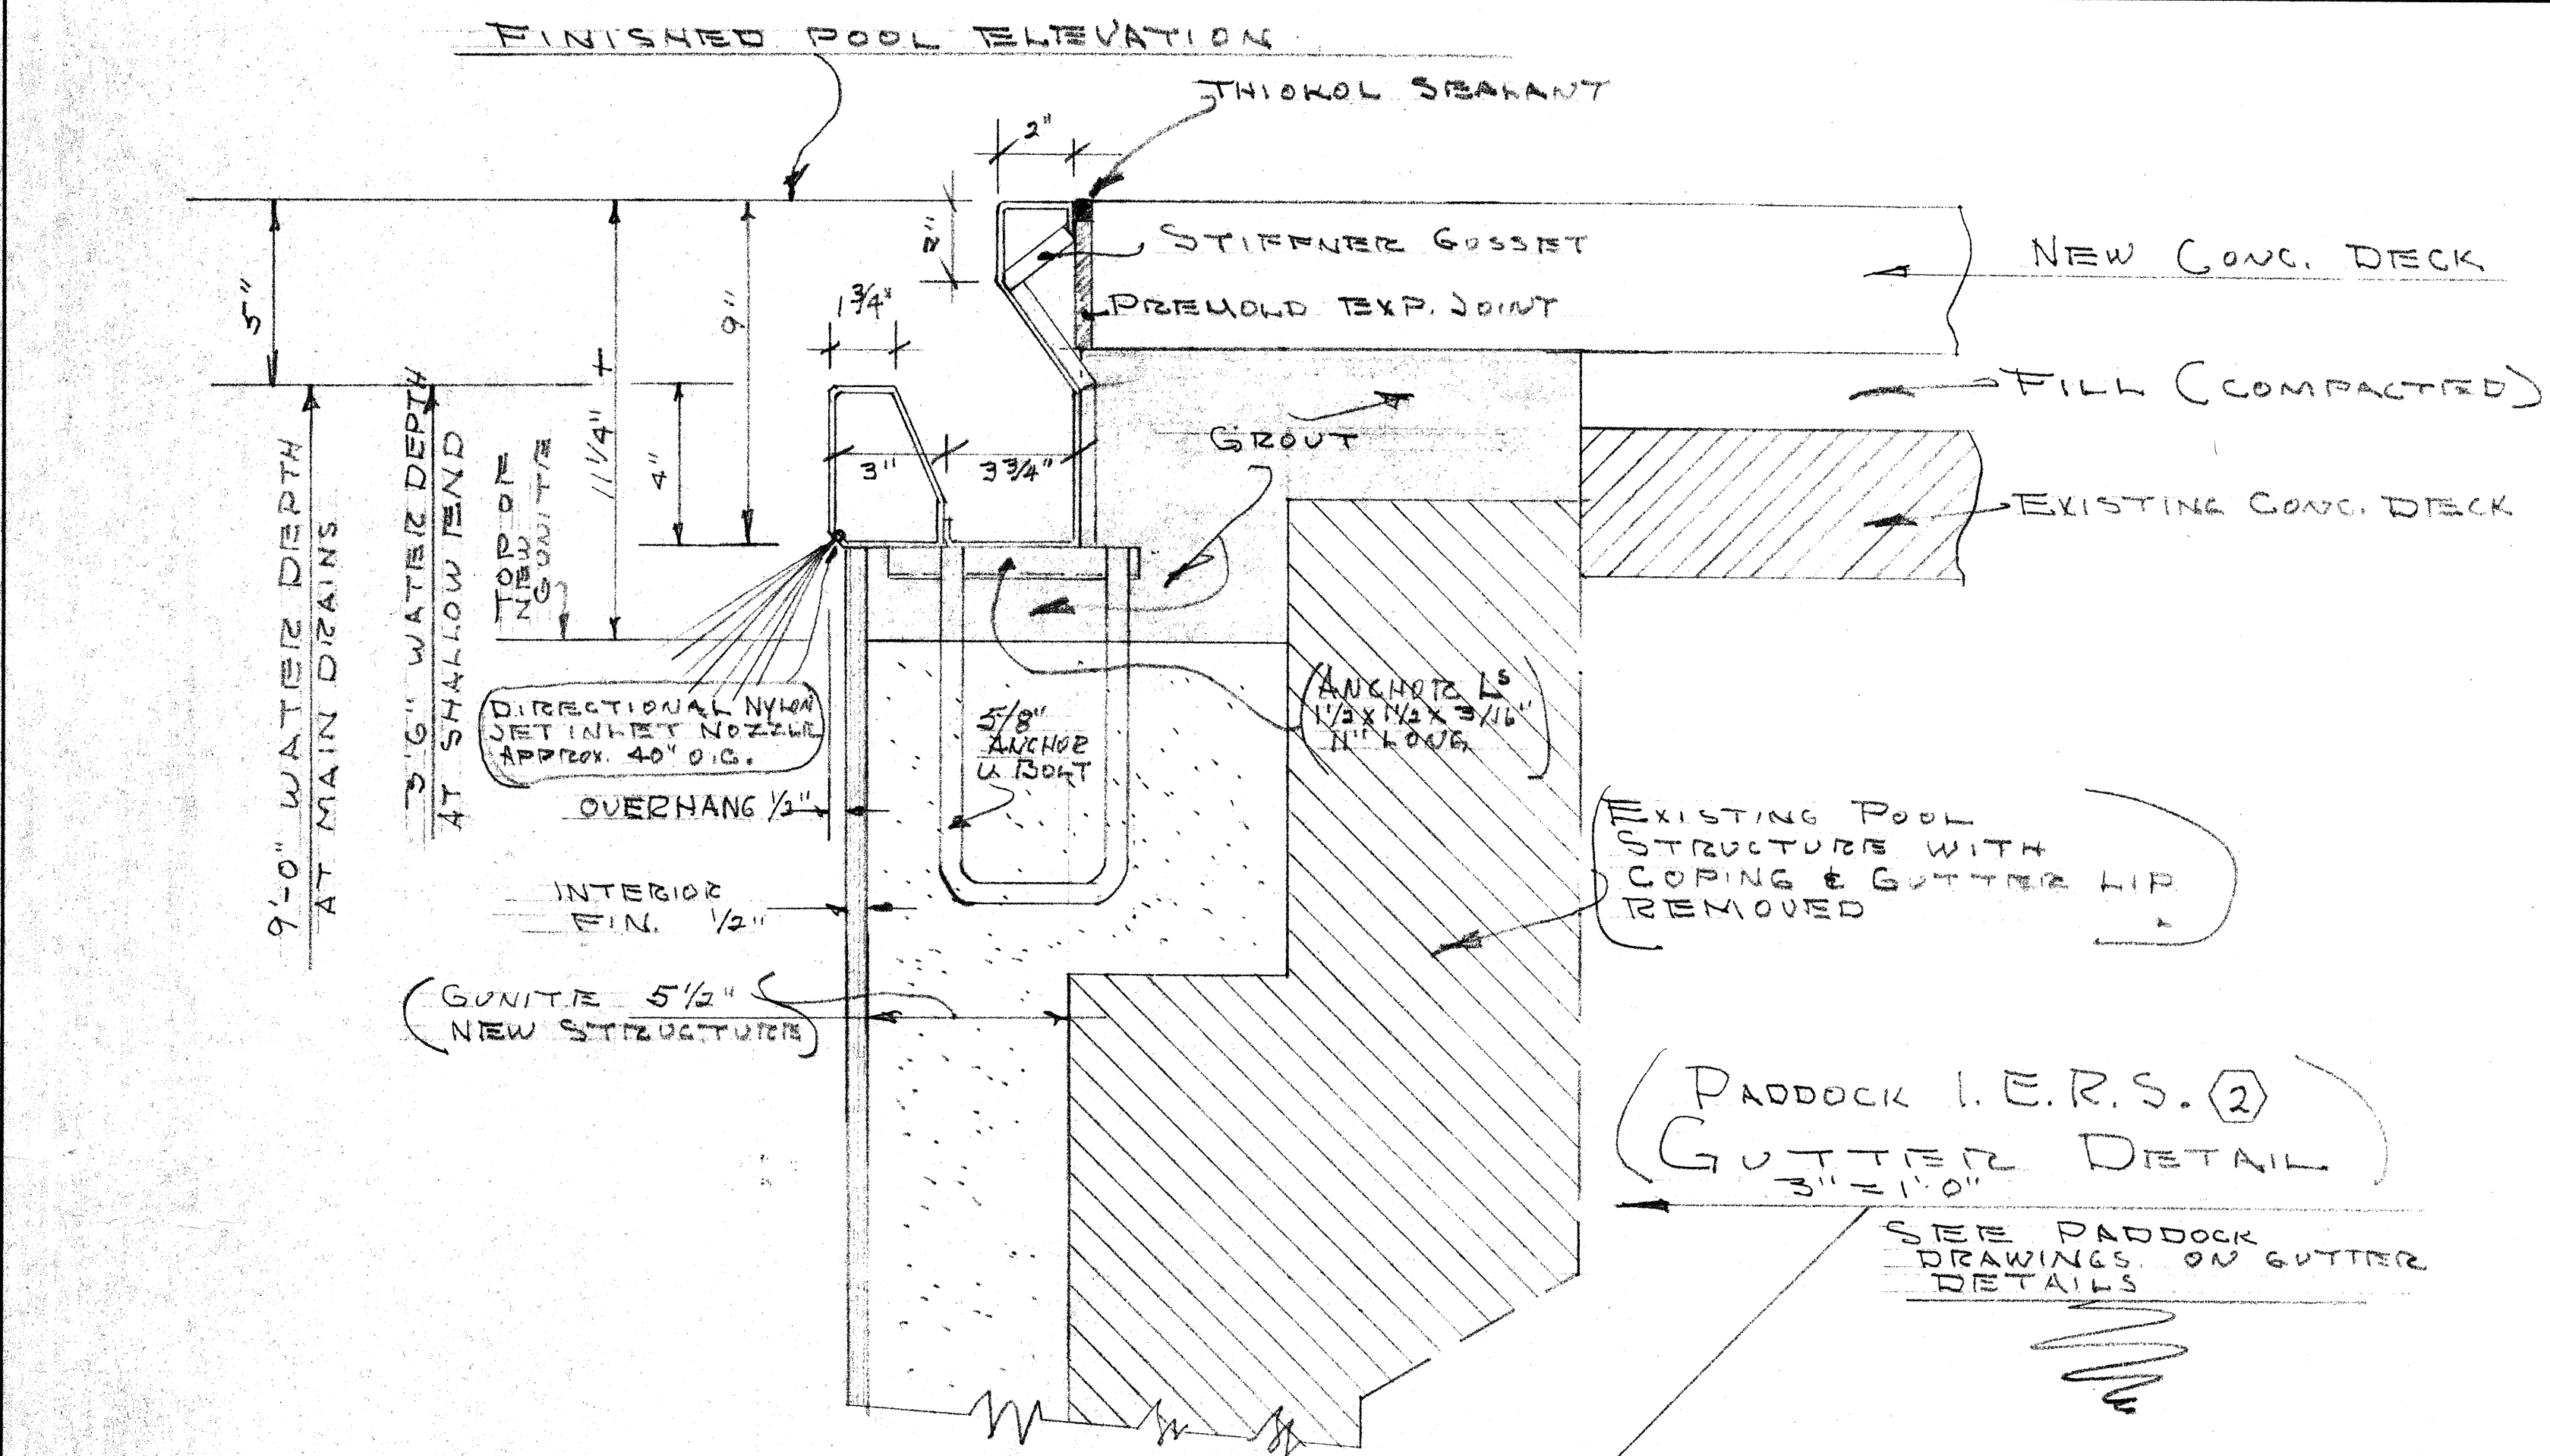 FINISHED POOL ELEVATION
THIOKOL SEALANT
2"
2"
STIFFNER GUSSET
NEW CONC. DECK
PREMOLD EXP. JOINT
5"
9"
1 3/4"
11 1/4" +
4"
3"
3 3/4"
FILL (COMPACTED)
GROUT
EXISTING CONC. DECK
9'-0" WATER DEPTH
AT MAIN DRAINS
3'6" WATER DEPTH
AT SHALLOW END
TOP OF
NEW
GUNITE
DIRECTIONAL NYLON
JET INLET NOZZLE
APPROX. 40" O.C.
5/8"
ANCHOR
U BOLT
(ANCHOR Ls
1 1/2 x 1 1/2 x 3/16"
11" LONG)
OVERHANG 1/2"
INTERIOR
FIN. 1/2"
(GUNITE 5 1/2"
NEW STRUCTURE)
(EXISTING POOL
STRUCTURE WITH
COPING & GUTTER LIP
REMOVED)
(PADDOCK I.E.R.S. 2
GUTTER DETAIL)
3" = 1'0"
SEE PADDOCK
DRAWINGS ON GUTTER
DETAILS